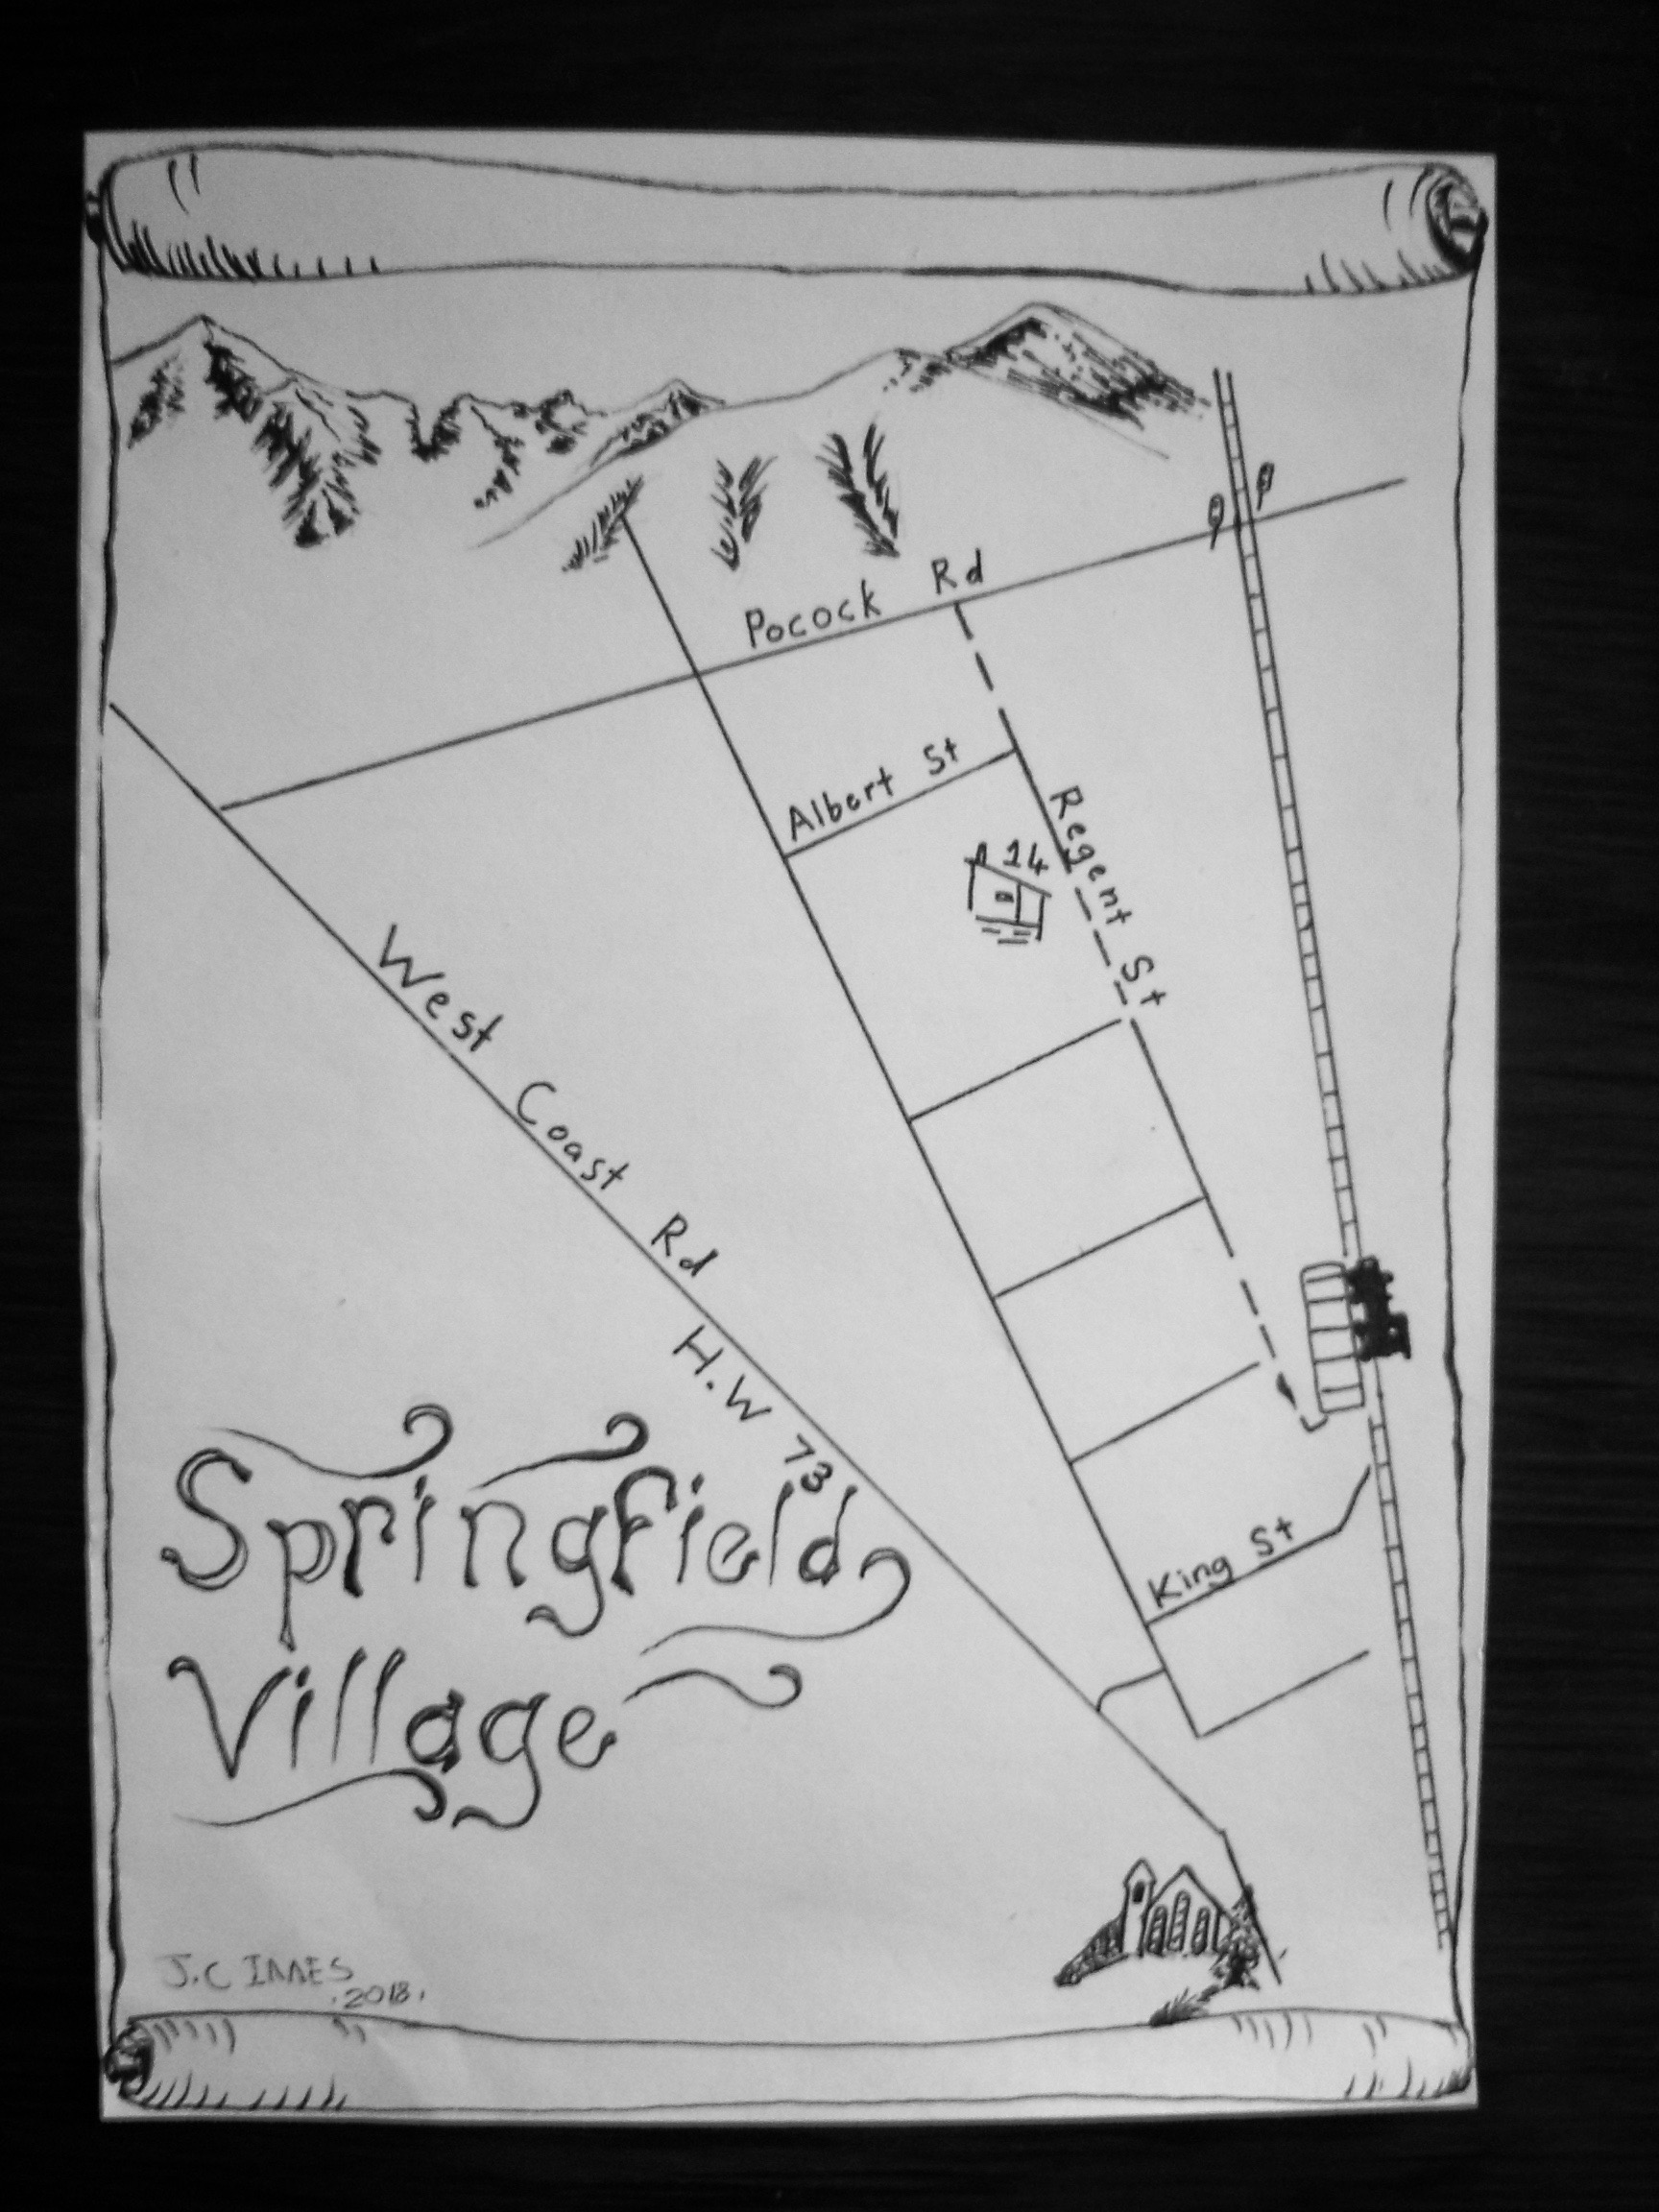 Pocock Rd
Albert St
14
Regent St
West Coast Rd
H.W 73
King St
Springfield
Village
J.C INNES
.2018.